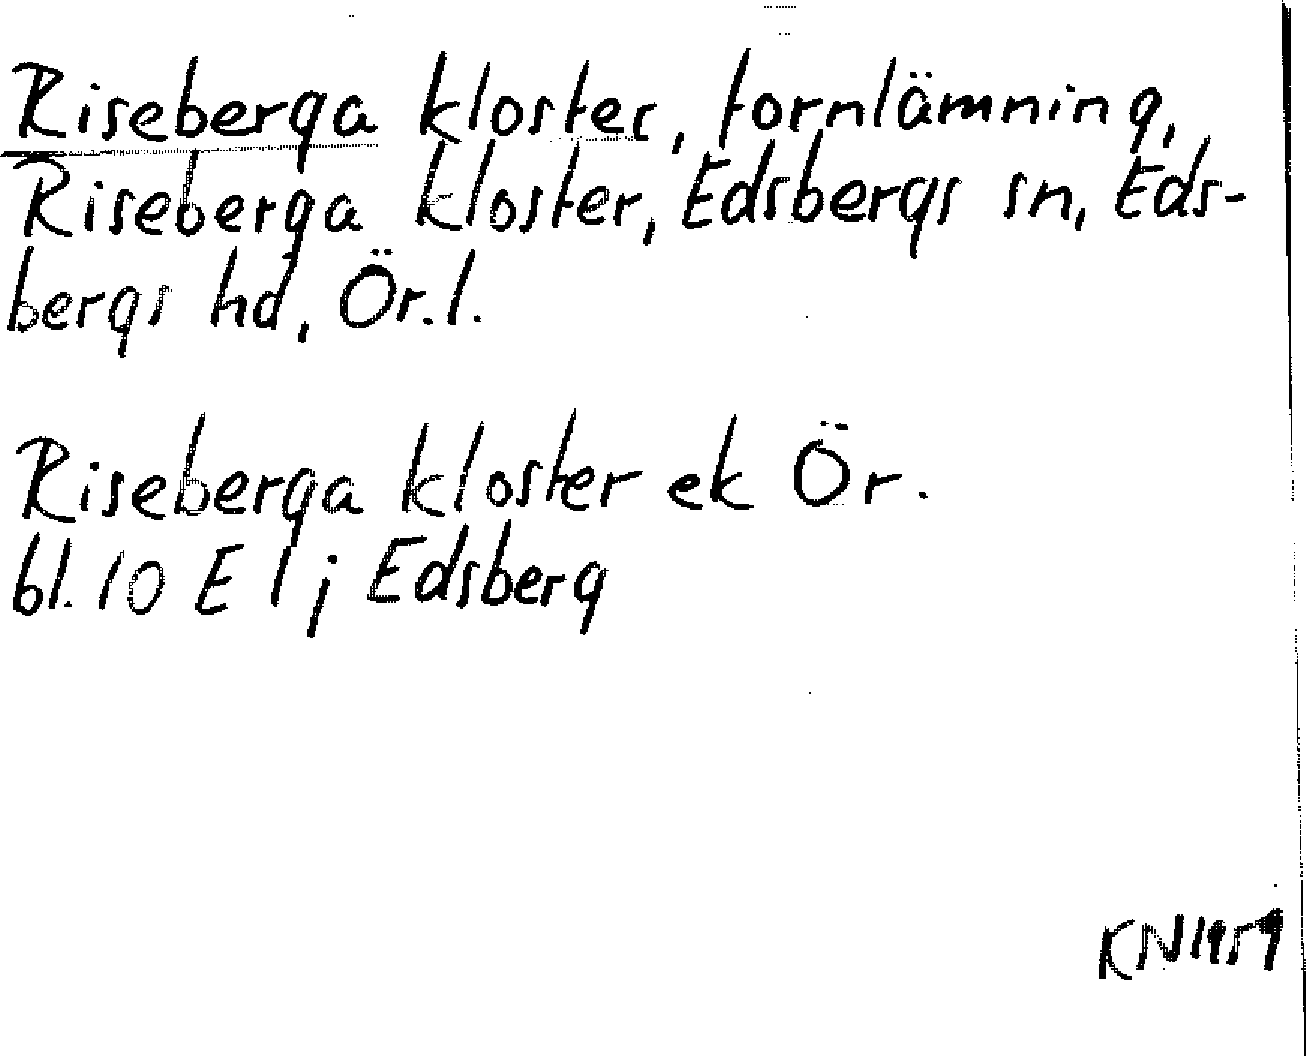 Riseberga kloster, fornlämning,
Riseberga kloster, Edsbergs sn, Eds-
bergs hd, Ör.l.
Riseberga kloster ek Ör.
bl. 10 E 1 j Edsberg
KN 1959